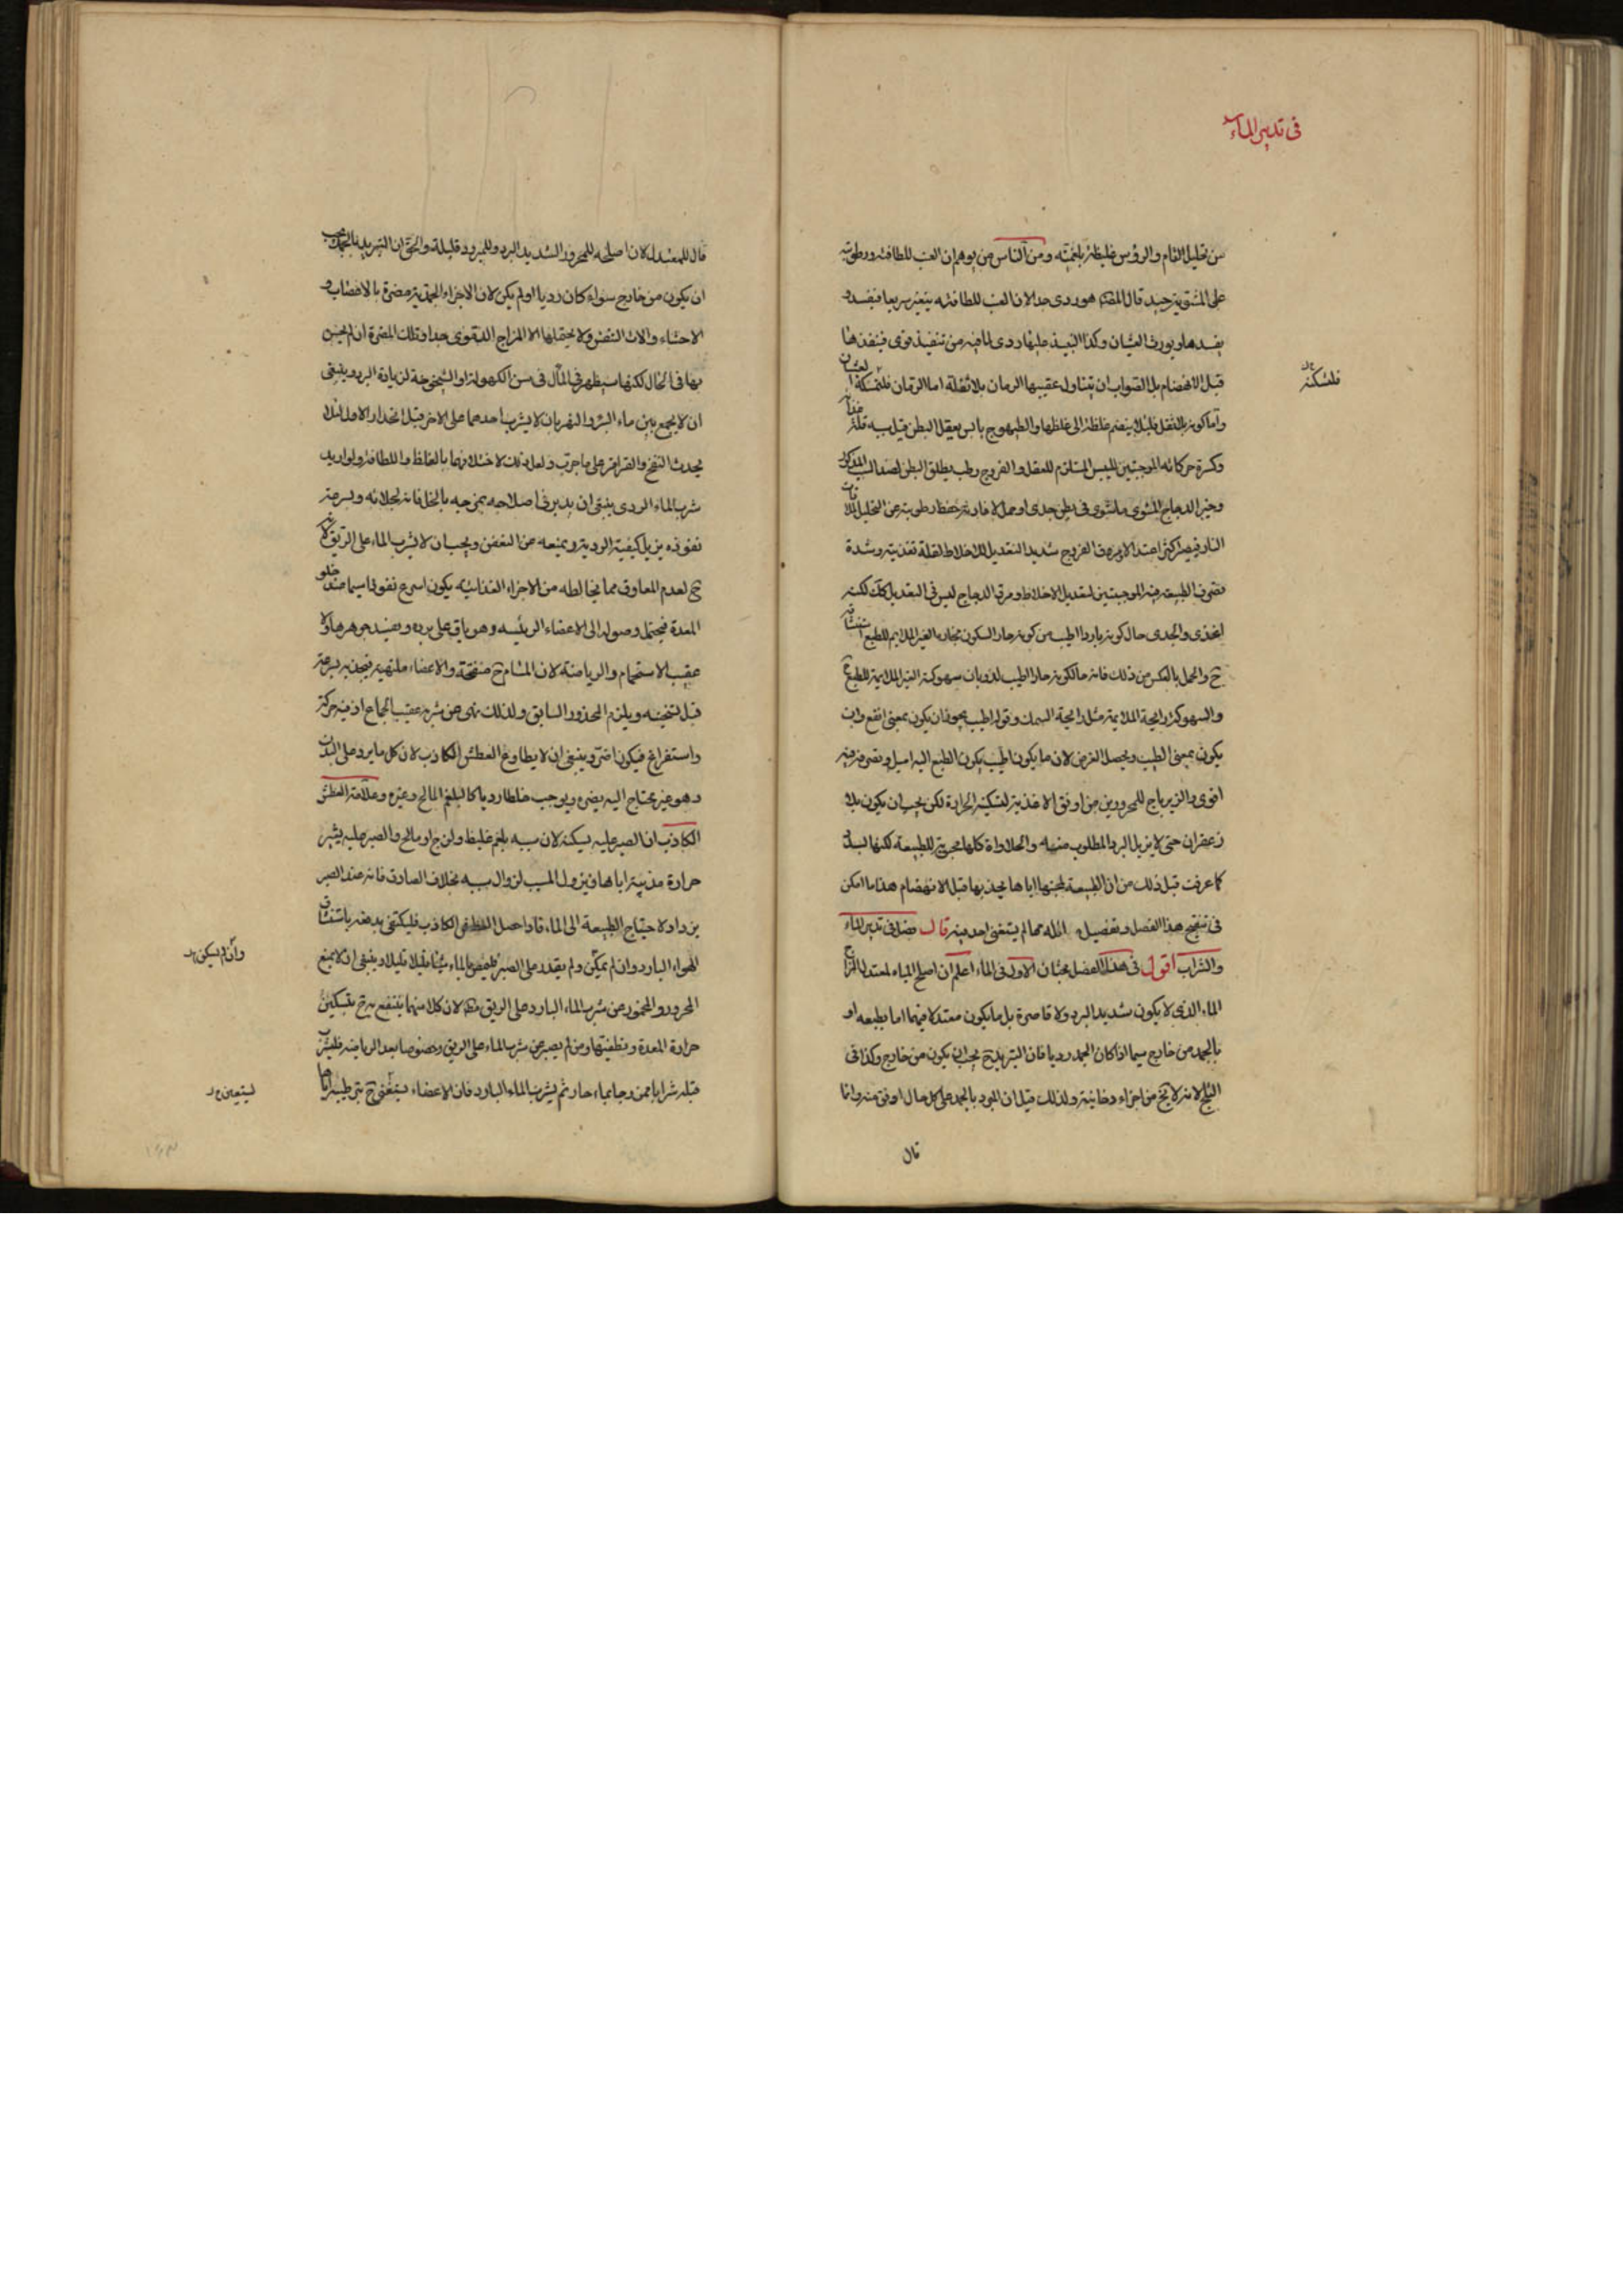 فى تدبير الماء
من تحليل التام والرؤس غليظة بلغمية ومن الناس من يوهم ان العنب للطافته ورطوبته
على المشوى جيد قال المص هو ردى جدا لان العنب للطافته يتغير سريعا فيفسد و
يفسدها ويورث الغثيان وكذا النبيذ عليها ردى لما فيه من تنفيذ قوى فينفذها
فلتسكينه
قبل الانهضام بل الصواب ان يتناول عقيبها الرمان بلا ثفله اما الرمان
واما كونه بلا ثفل فلئلا ينضم غلظه الى غلظها والطيهوج يابس يعقل البطن قيل سببه قلة
وكثرة حركاته الموجبتين لليبس المستلزم للعقل والفروج رطب يطلق البطن لضد السبب المذكور
وخير الدجاج المشوى ما شوى فى بطن جدى او حمل لانه يحفظ رطوبته عن التحليل
النار فيصير اكثر اعتدالا ومرق الفروج شديد التعديل للاخلاط لقلة تغذيته وشدة
تصرف الطبيعة فيه الموجبتين لتعديل الاخلاط ومرق الدجاج ليس فى التعديل كذلك لكنه
اغذى والجدى حال كونه باردا اطيب من كونه حارا لسكون بخاره الغير الملايم للطبع
ح والحمل بالعكس من ذلك فانه حال كونه حارا اطيب لذوبان سهوكته الغير الملايمة للطبع
والسهوكة رايحة الملايمة مثل رايحة السمك وقوله اطيب يجوز ان يكون بمعنى انفع وان
يكون بمعنى الطيب ويحصل الغرض لان ما يكون اطيب يكون الطبع اليه اميل وتصرفه فيه
اقوى والزيرباج للمحرورين من اوفق الاغذية لتسكينه الحرارة لكن يجب ان يكون بلا
زعفران حتى لا يزيل البرد المطلوب منه والحلاوات كلها محرية للطبيعة لكنها
كما عرفت قبل ذلك من ان الطبيعة لمحبتها اياها يجذبها قبل الانهضام هذا ما امكن
فى تنقيح هذا الفصل وتفصيل الله مما لم يستغنى احد منه قال فصل فى تدبير الماء
والشراب اقول فى هذا الفصل بحثان الاول فى الماء اعلم ان اصلح المياه لمعتدل المزاج
الماء الذى لا يكون شديد البرد ولا قاصره بل ما يكون معتدلا فيهما اما بطبعه او
بالجمد من خارج سيما اذا كان الجمد رديا فان التبريد ح يجب ان يكون من خارج وكذا فى
الثلج لانه لا يخ من اجزاء دخانية ولذلك قيل ان المبرد بالجمد على كل حال اوفق منه وانما
قال
قال للمعتدل لان اصلحه للمحرور الشديد البرد وللمبرود قليله والحق ان التبريد بالجمد يجب
ان يكون من خارج سواء كان رديا او لم يكن لان الاجزاء الجمدية مضرة بالاعصاب و
الاحشاء والات التنفس ولا يحتملها الا المزاج الدموى جدا وتلك المضرة ان لم يحس
بها فى الحال لكنها سيظهر فى المآل فى سن الكهولة او الشيخوخة لزيادة البرد وينبغى
ان لا يجمع بين ماء البئر والنهر بان لا يشرب احدهما على الاخر قبل انحدار الاول لئلا
يحدث النفخ والقراقر على ما جرب ولعل ذلك لاختلافهما بالغلظ واللطافة ولو اريد
شرب الماء الردى ينبغى ان يدبر فى اصلاحه بمزجه بالخل فانه لجلائه وبسرعة
نفوذه يزيل كيفيته الردية ويمنعه عن التعفن ويجب ان لا يشرب الماء على الريق لانه
ح لعدم المعاوق مما يخالطه من الاجزاء الغذائية يكون اسرع نفوذا سيما عند خلو
المعدة فيحتمل وصوله الى الاعضاء الرئيسه وهو باق على برده ويفسد جوهرها ولا
عقيب الاستحمام والرياضة لان المشام ح منفتحة والاعضاء ملتهبة فيجذبه بسرعة
قبل تسخينه ويلزم المحذور السابق ولذلك نهى عن شربه عقيب الجماع اذ فيه حركة
واستفراغ فيكون اضر وينبغى ان لا يطاوع العطش الكاذب لان كل ما يرد على البدن
وهو غير محتاج اليه يضر ويوجب خلطا رديا كالبلغم المالح وغيره وعلامة العطش
الكاذب ان الصبر عليه يسكنه لان سببه بلغم غليظ ولزج او مالح والصبر عليه يثير
حرارة مذيبة اياها فيزول المسبب لزوال سببه بخلاف الصادق فانه عند الصبر
يزداد لاحتياج الطبيعة الى الماء فاذا حصل العطش الكاذب فليكتفى بدفعه باستنشاق
الهواء البارد وان لم يمكن ولم يقدر على الصبر فليمص الماء شيئا قليلا قليلا وينبغى ان لا يمنع
وان لم يسكن
المحرور والمخمور من شرب الماء البارد على الريق لان كلا منهما ينتفع به ح بتسكين
حرارة المعدة وتطفيتها ومن لم يصبر عن شرب الماء على الريق وخصوصا بعد الرياضة فليشرب
قبله شرابا ممزوجا بماء حار ثم يشرب الماء البارد فان الاعضاء يستغنى ح بترطيبه اياها
ليستعين